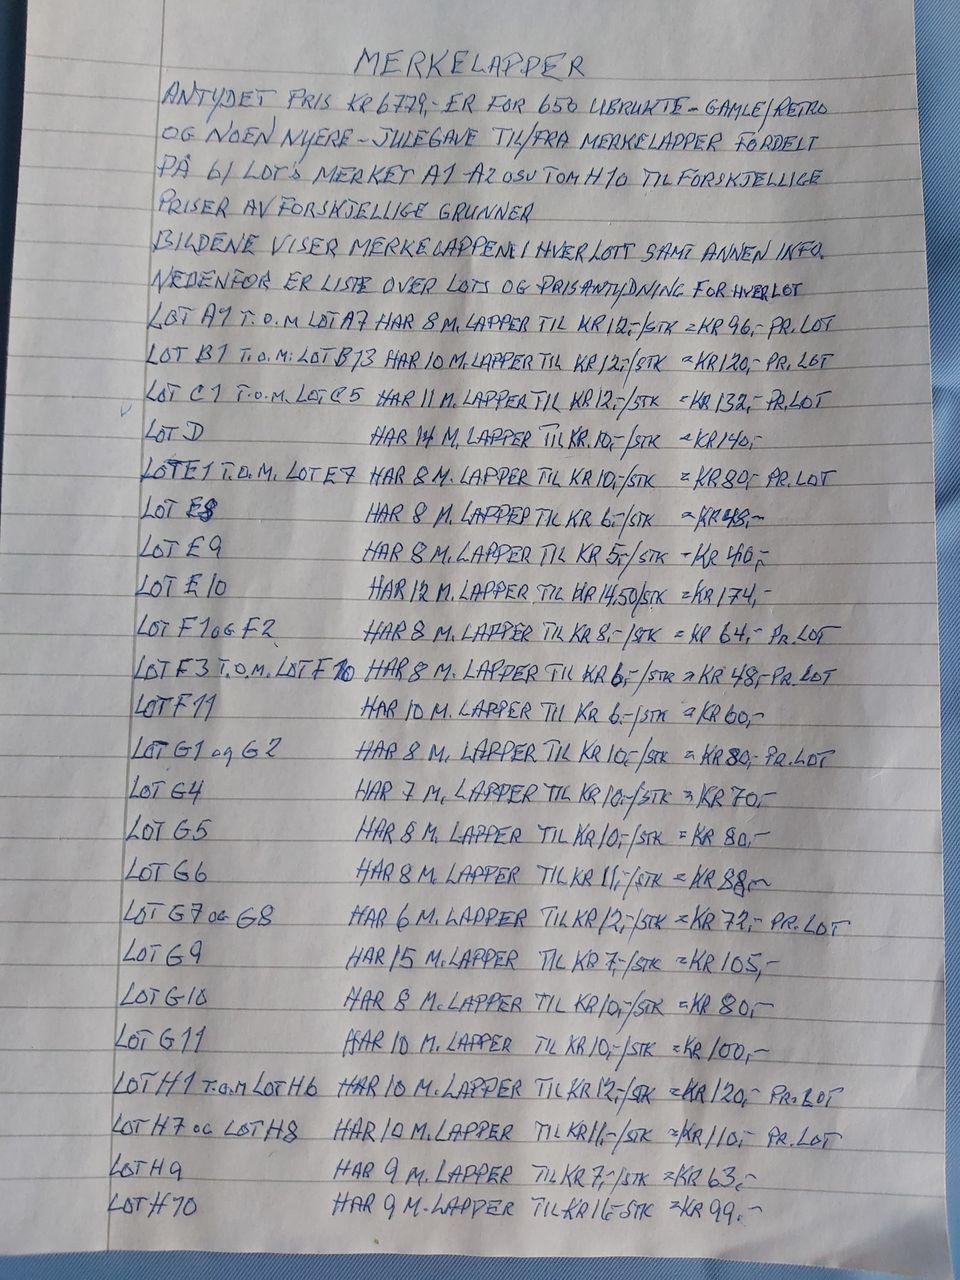 MERKELAPPER
ANTYDET PRIS KR 6779,- ER FOR 650 UBRUKTE - GAMLE/RETRO
OG NOEN NYERE - JULEGAVE TIL/FRA MERKELAPPER FORDELT
PÅ 61 LOT'S MERKET A1 - A2 OSV TOM H10 TIL FORSKJELLIGE
PRISER AV FORSKJELLIGE GRUNNER
BILDENE VISER MERKELAPPENE I HVER LOTT SAMT ANNEN INFO.
NEDENFOR ER LISTE OVER LOTS OG PRISANTYDNING FOR HVER LOT
LOT A1 T.O.M LOT A7 HAR 8 M. LAPPER TIL KR 12,-/STK = KR 96,- PR. LOT
LOT B1 T.O.M: LOT B13 HAR 10 M. LAPPER TIL KR 12,-/STK = KR 120,- PR. LOT
LOT C1 T.O.M. LOT C5 HAR 11 M. LAPPER TIL KR 12,-/STK = KR 132,- PR. LOT
LOT D HAR 14 M. LAPPER TIL KR. 10,-/STK = KR 140,-
LOT E1 T.O.M. LOT E7 HAR 8 M. LAPPER TIL KR 10,-/STK = KR 80,- PR. LOT
LOT E8 HAR 8 M. LAPPER TIL KR 6,-/STK = KR 48,-
LOT E9 HAR 8 M. LAPPER TIL KR 5,-/STK = KR 40,-
LOT E10 HAR 12 M. LAPPER TIL KR 14,50/STK = KR 174,-
LOT F1 OG F2 HAR 8 M. LAPPER TIL KR 8,-/STK = KR 64,- PR. LOT
LOT F3 T.O.M. LOT F10 HAR 8 M. LAPPER TIL KR 6,-/STK = KR 48,- PR. LOT
LOT F11 HAR 10 M. LAPPER TIL KR 6,-/STK = KR 60,-
LOT G1 og G2 HAR 8 M. LAPPER TIL KR 10,-/STK = KR 80,- PR. LOT
LOT G4 HAR 7 M. LAPPER TIL KR 10,-/STK = KR 70,-
LOT G5 HAR 8 M. LAPPER TIL KR 10,-/STK = KR 80,-
LOT G6 HAR 8 M. LAPPER TIL KR 11,-/STK = KR 88,-
LOT G7 OG G8 HAR 6 M. LAPPER TIL KR 12,-/STK = KR 72,- PR. LOT
LOT G9 HAR 15 M. LAPPER TIL KR 7,-/STK = KR 105,-
LOT G10 HAR 8 M. LAPPER TIL KR 10,-/STK = KR 80,-
LOT G11 HAR 10 M. LAPPER TIL KR 10,-/STK = KR 100,-
LOT H1 T.O.M LOT H6 HAR 10 M. LAPPER TIL KR 12,-/STK = KR 120,- PR. LOT
LOT H7 OG LOT H8 HAR 10 M. LAPPER TIL KR 11,-/STK = KR 110,- PR. LOT
LOT H9 HAR 9 M. LAPPER TIL KR 7,-/STK = KR 63,-
LOT H10 HAR 9 M. LAPPER TIL KR 11,- STK = KR 99,-